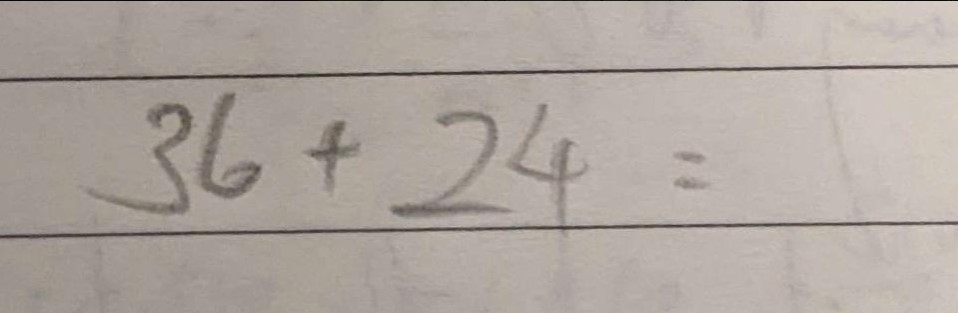 36 + 24 =